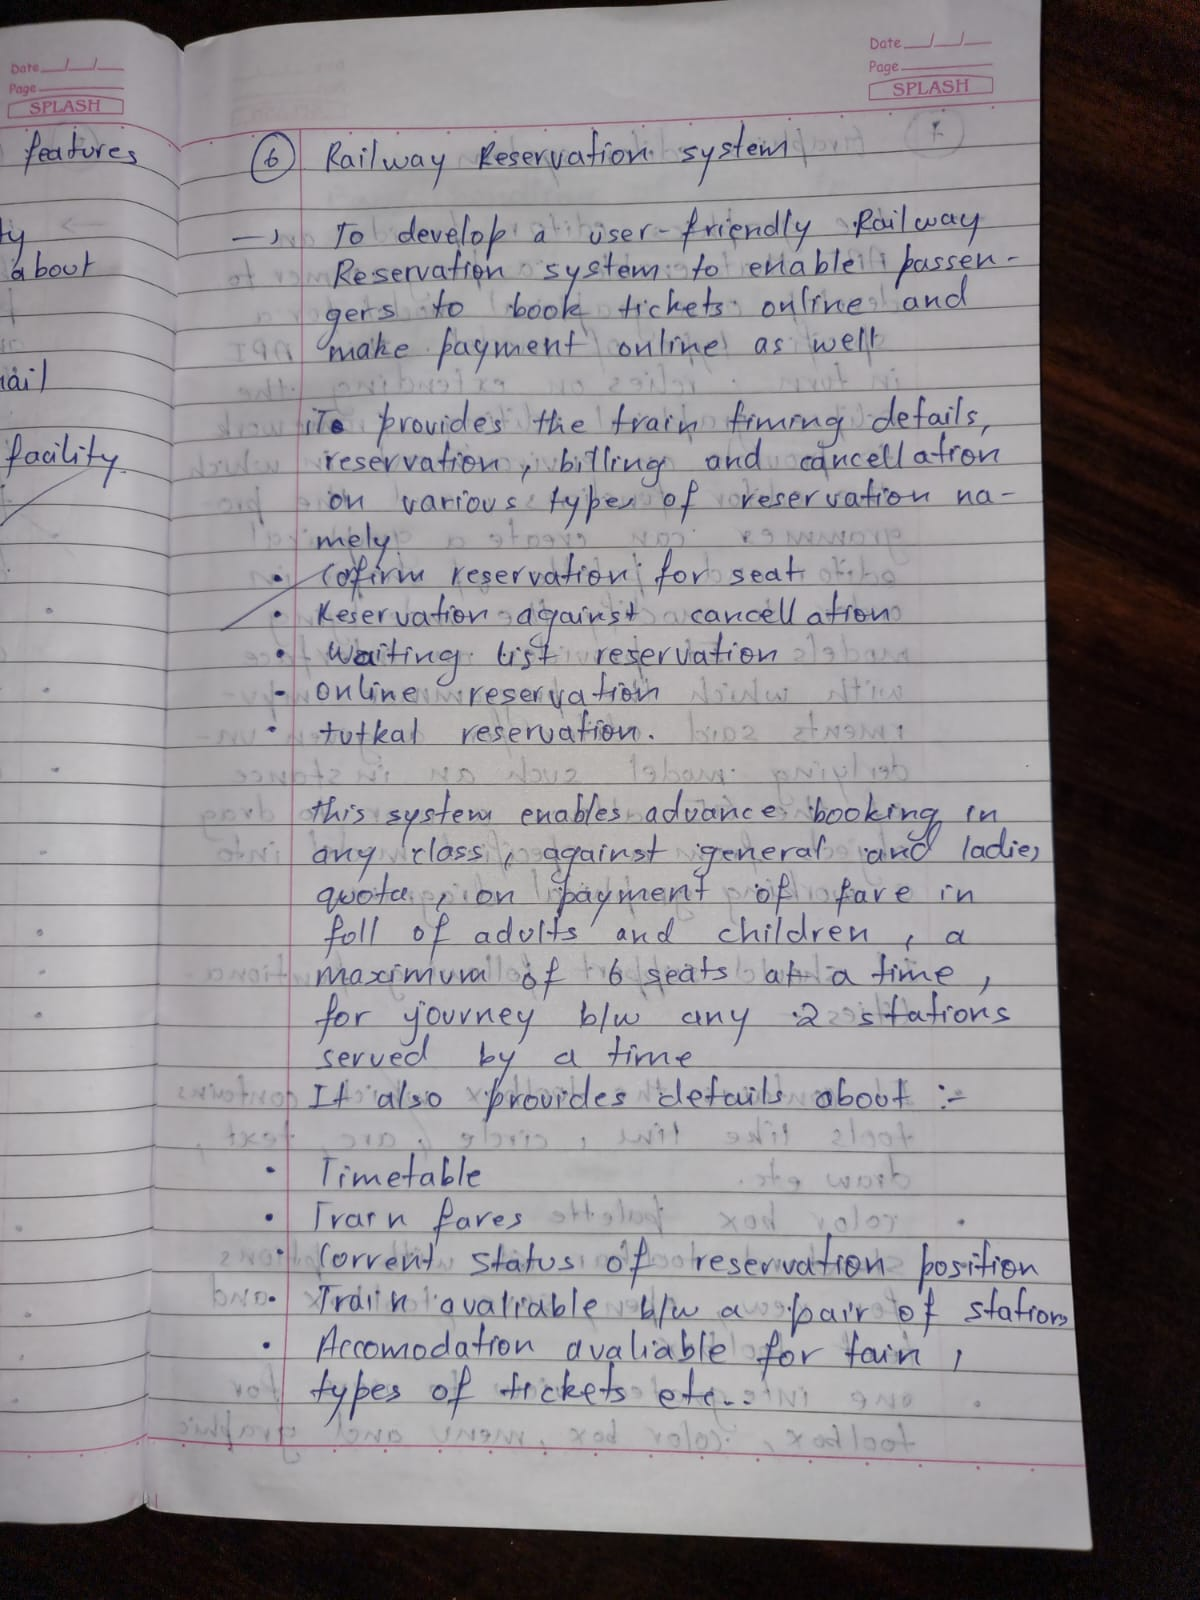 Date
Page
SPLASH
features
ty
about
mail
facility.
Date
Page
SPLASH
6 Railway Reservation system
→ To develop a user-friendly Railway
Reservation system to enable passen-
gers to book tickets online and
make payment online as well
it provides the train timing details,
reservation, billing and cancellation
on various types of reservation na-
mely
• Cofirm reservation for seat
• Reservation against cancellation
• Waiting list reservation
• online reservation
• tutkal reservation.
this system enables advance booking in
any class, against general and ladies
quota, on payment of fare in
foll of adults and children, a
maximum of 6 seats at a time,
for journey b/w any 2 stations
served by a time
It also provides details about :-
• Timetable
• Train fares
• Corrent status of reservation position
• Train avaliable b/w a pair of stations
• Accomodation avaliable for tain,
types of tickets etc..